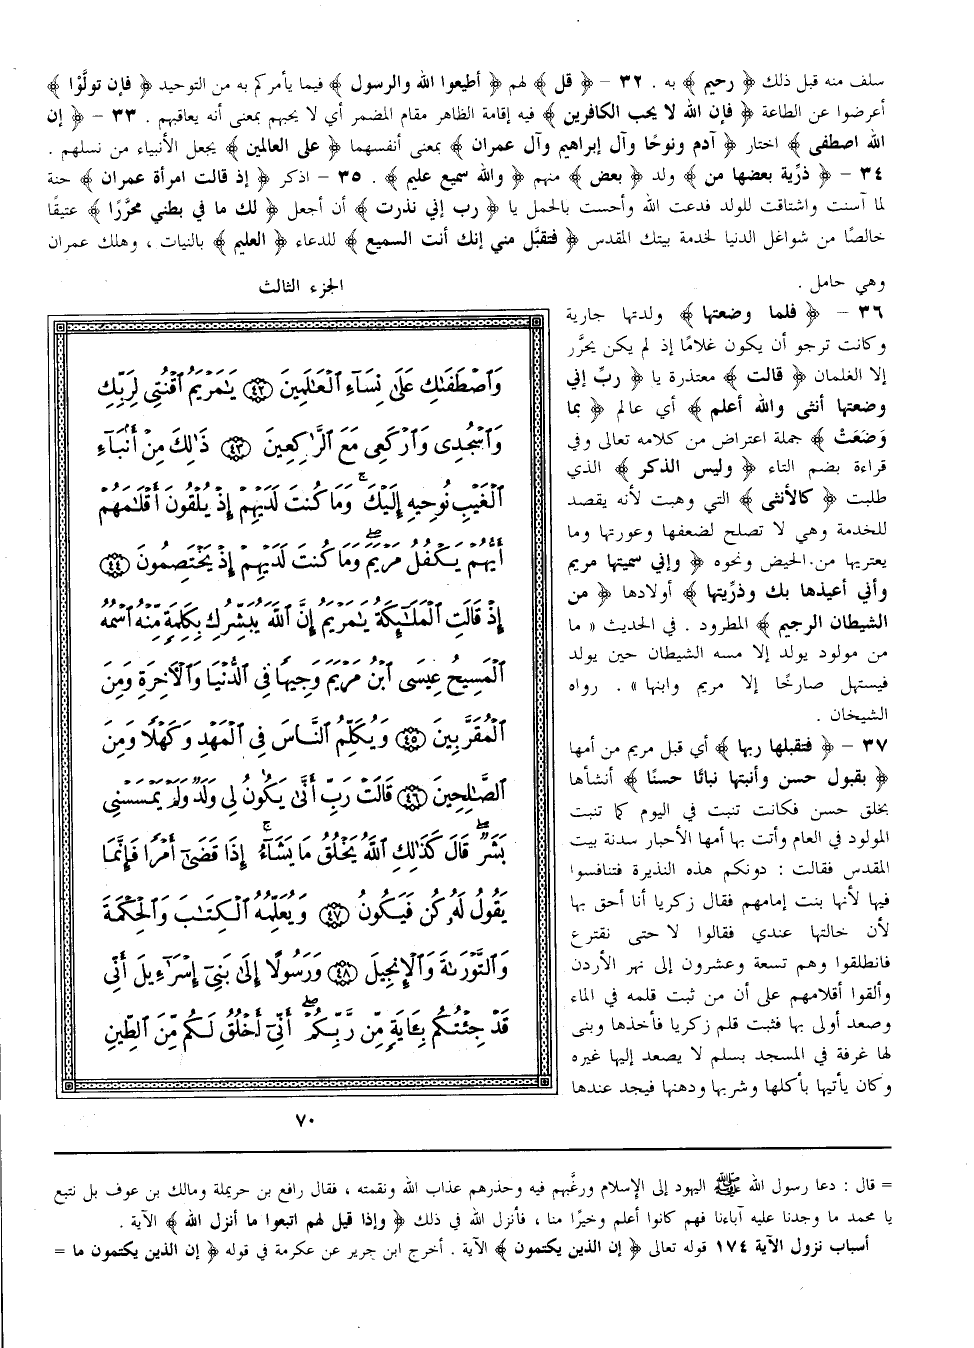 سلف منه قبل ذلك ﴿ رحيم ﴾ به . ٣٢ – ﴿ قل ﴾ لهم ﴿ أطيعوا الله والرسول ﴾ فيما يأمركم به من التوحيد ﴿ فإن تولَّوْا ﴾
أعرضوا عن الطاعة ﴿ فإن الله لا يحب الكافرين ﴾ فيه إقامة الظاهر مقام المضمر أي لا يحبهم بمعنى أنه يعاقبهم . ٣٣ – ﴿ إن
الله اصطفى ﴾ اختار ﴿ آدم ونوحًا وآل إبراهيم وآل عمران ﴾ بمعنى أنفسهما ﴿ على العالمين ﴾ يجعل الأنبياء من نسلهم .
٣٤ – ﴿ ذرِّية بعضها من ﴾ ولد ﴿ بعض ﴾ منهم ﴿ والله سميع عليم ﴾ . ٣٥ – اذكر ﴿ إذ قالت امرأة عمران ﴾ حنة
لما آسنت واشتاقت للولد فدعت الله وأحست بالحمل يا ﴿ رب إني نذرت ﴾ أن أجعل ﴿ لك ما في بطني محرَّرًا ﴾ عتيقًا
خالصًا من شواغل الدنيا لخدمة بيتك المقدس ﴿ فتقبَّل مني إنك أنت السميع ﴾ للدعاء ﴿ العليم ﴾ بالنيات ، وهلك عمران
وهي حامل .
الجزء الثالث
٣٦ – ﴿ فلما وضعتها ﴾ ولدتها جارية
وكانت ترجو أن يكون غلامًا إذ لم يكن يحرَّر
إلا الغلمان ﴿ قالت ﴾ معتذرة يا ﴿ ربِّ إني
وضعتها أنثى والله أعلم ﴾ أي عالم ﴿ بما
وَضَعَتْ ﴾ جملة اعتراض من كلامه تعالى وفي
قراءة بضم التاء ﴿ وليس الذكر ﴾ الذي
طلبت ﴿ كالأنثى ﴾ التي وهبت لأنه يقصد
للخدمة وهي لا تصلح لضعفها وعورتها وما
يعتريها من الحيض ونحوه ﴿ وإني سميتها مريم
وأني أعيذها بك وذرِّيتها ﴾ أولادها ﴿ من
الشيطان الرجيم ﴾ المطرود . في الحديث « ما
من مولود يولد إلا مسه الشيطان حين يولد
فيستهل صارخًا إلا مريم وابنها » . رواه
الشيخان .
٣٧ – ﴿ فتقبلها ربها ﴾ أي قبل مريم من أمها
﴿ بقبول حسن وأنبتها نباتًا حسنًا ﴾ أنشأها
بخلق حسن فكانت تنبت في اليوم كما تنبت
المولود في العام وأتت بها أمها الأحبار سدنة بيت
المقدس فقالت : دونكم هذه النذيرة فتنافسوا
فيها لأنها بنت إمامهم فقال زكريا أنا أحق بها
لأن خالتها عندي فقالوا لا حتى نقترع
فانطلقوا وهم تسعة وعشرون إلى نهر الأردن
وألقوا أقلامهم على أن من ثبت قلمه في الماء
وصعد أولى بها فثبت قلم زكريا فأخذها وبنى
لها غرفة في المسجد بسلم لا يصعد إليها غيره
وكان يأتيها بأكلها وشربها ودهنها فيجد عندها
وَٱصۡطَفَىٰكِ عَلَىٰ نِسَآءِ ٱلۡعَٰلَمِينَ ٤٢ يَٰمَرۡيَمُ ٱقۡنُتِي لِرَبِّكِ
وَٱسۡجُدِي وَٱرۡكَعِي مَعَ ٱلرَّٰكِعِينَ ٤٣ ذَٰلِكَ مِنۡ أَنۢبَآءِ
ٱلۡغَيۡبِ نُوحِيهِ إِلَيۡكَۚ وَمَا كُنتَ لَدَيۡهِمۡ إِذۡ يُلۡقُونَ أَقۡلَٰمَهُمۡ
أَيُّهُمۡ يَكۡفُلُ مَرۡيَمَ وَمَا كُنتَ لَدَيۡهِمۡ إِذۡ يَخۡتَصِمُونَ ٤٤
إِذۡ قَالَتِ ٱلۡمَلَٰٓئِكَةُ يَٰمَرۡيَمُ إِنَّ ٱللَّهَ يُبَشِّرُكِ بِكَلِمَةٖ مِّنۡهُ ٱسۡمُهُ
ٱلۡمَسِيحُ عِيسَى ٱبۡنُ مَرۡيَمَ وَجِيهٗا فِي ٱلدُّنۡيَا وَٱلۡأٓخِرَةِ وَمِنَ
ٱلۡمُقَرَّبِينَ ٤٥ وَيُكَلِّمُ ٱلنَّاسَ فِي ٱلۡمَهۡدِ وَكَهۡلٗا وَمِنَ
ٱلصَّٰلِحِينَ ٤٦ قَالَتۡ رَبِّ أَنَّىٰ يَكُونُ لِي وَلَدٞ وَلَمۡ يَمۡسَسۡنِي
بَشَرٞۖ قَالَ كَذَٰلِكِ ٱللَّهُ يَخۡلُقُ مَا يَشَآءُۚ إِذَا قَضَىٰٓ أَمۡرٗا فَإِنَّمَا
يَقُولُ لَهُۥ كُن فَيَكُونُ ٤٧ وَيُعَلِّمُهُ ٱلۡكِتَٰبَ وَٱلۡحِكۡمَةَ
وَٱلتَّوۡرَىٰةَ وَٱلۡإِنجِيلَ ٤٨ وَرَسُولًا إِلَىٰ بَنِيٓ إِسۡرَٰٓءِيلَ أَنِّي
قَدۡ جِئۡتُكُم بِـَٔايَةٖ مِّن رَّبِّكُمۡۖ أَنِّيٓ أَخۡلُقُ لَكُم مِّنَ ٱلطِّينِ
٧٠
= قال : دعا رسول الله ﷺ اليهود إلى الإسلام ورغَّبهم فيه وحذرهم عذاب الله ونقمته ، فقال رافع بن حريملة ومالك بن عوف بل نتبع
يا محمد ما وجدنا عليه آباءنا فهم كانوا أعلم وخيرًا منا ، فأنزل الله في ذلك ﴿ وإذا قيل لهم اتبعوا ما أنزل الله ﴾ الآية .
أسباب نزول الآية ١٧٤ قوله تعالى ﴿ إن الذين يكتمون ﴾ الآية . أخرج ابن جرير عن عكرمة في قوله ﴿ إن الذين يكتمون ما =